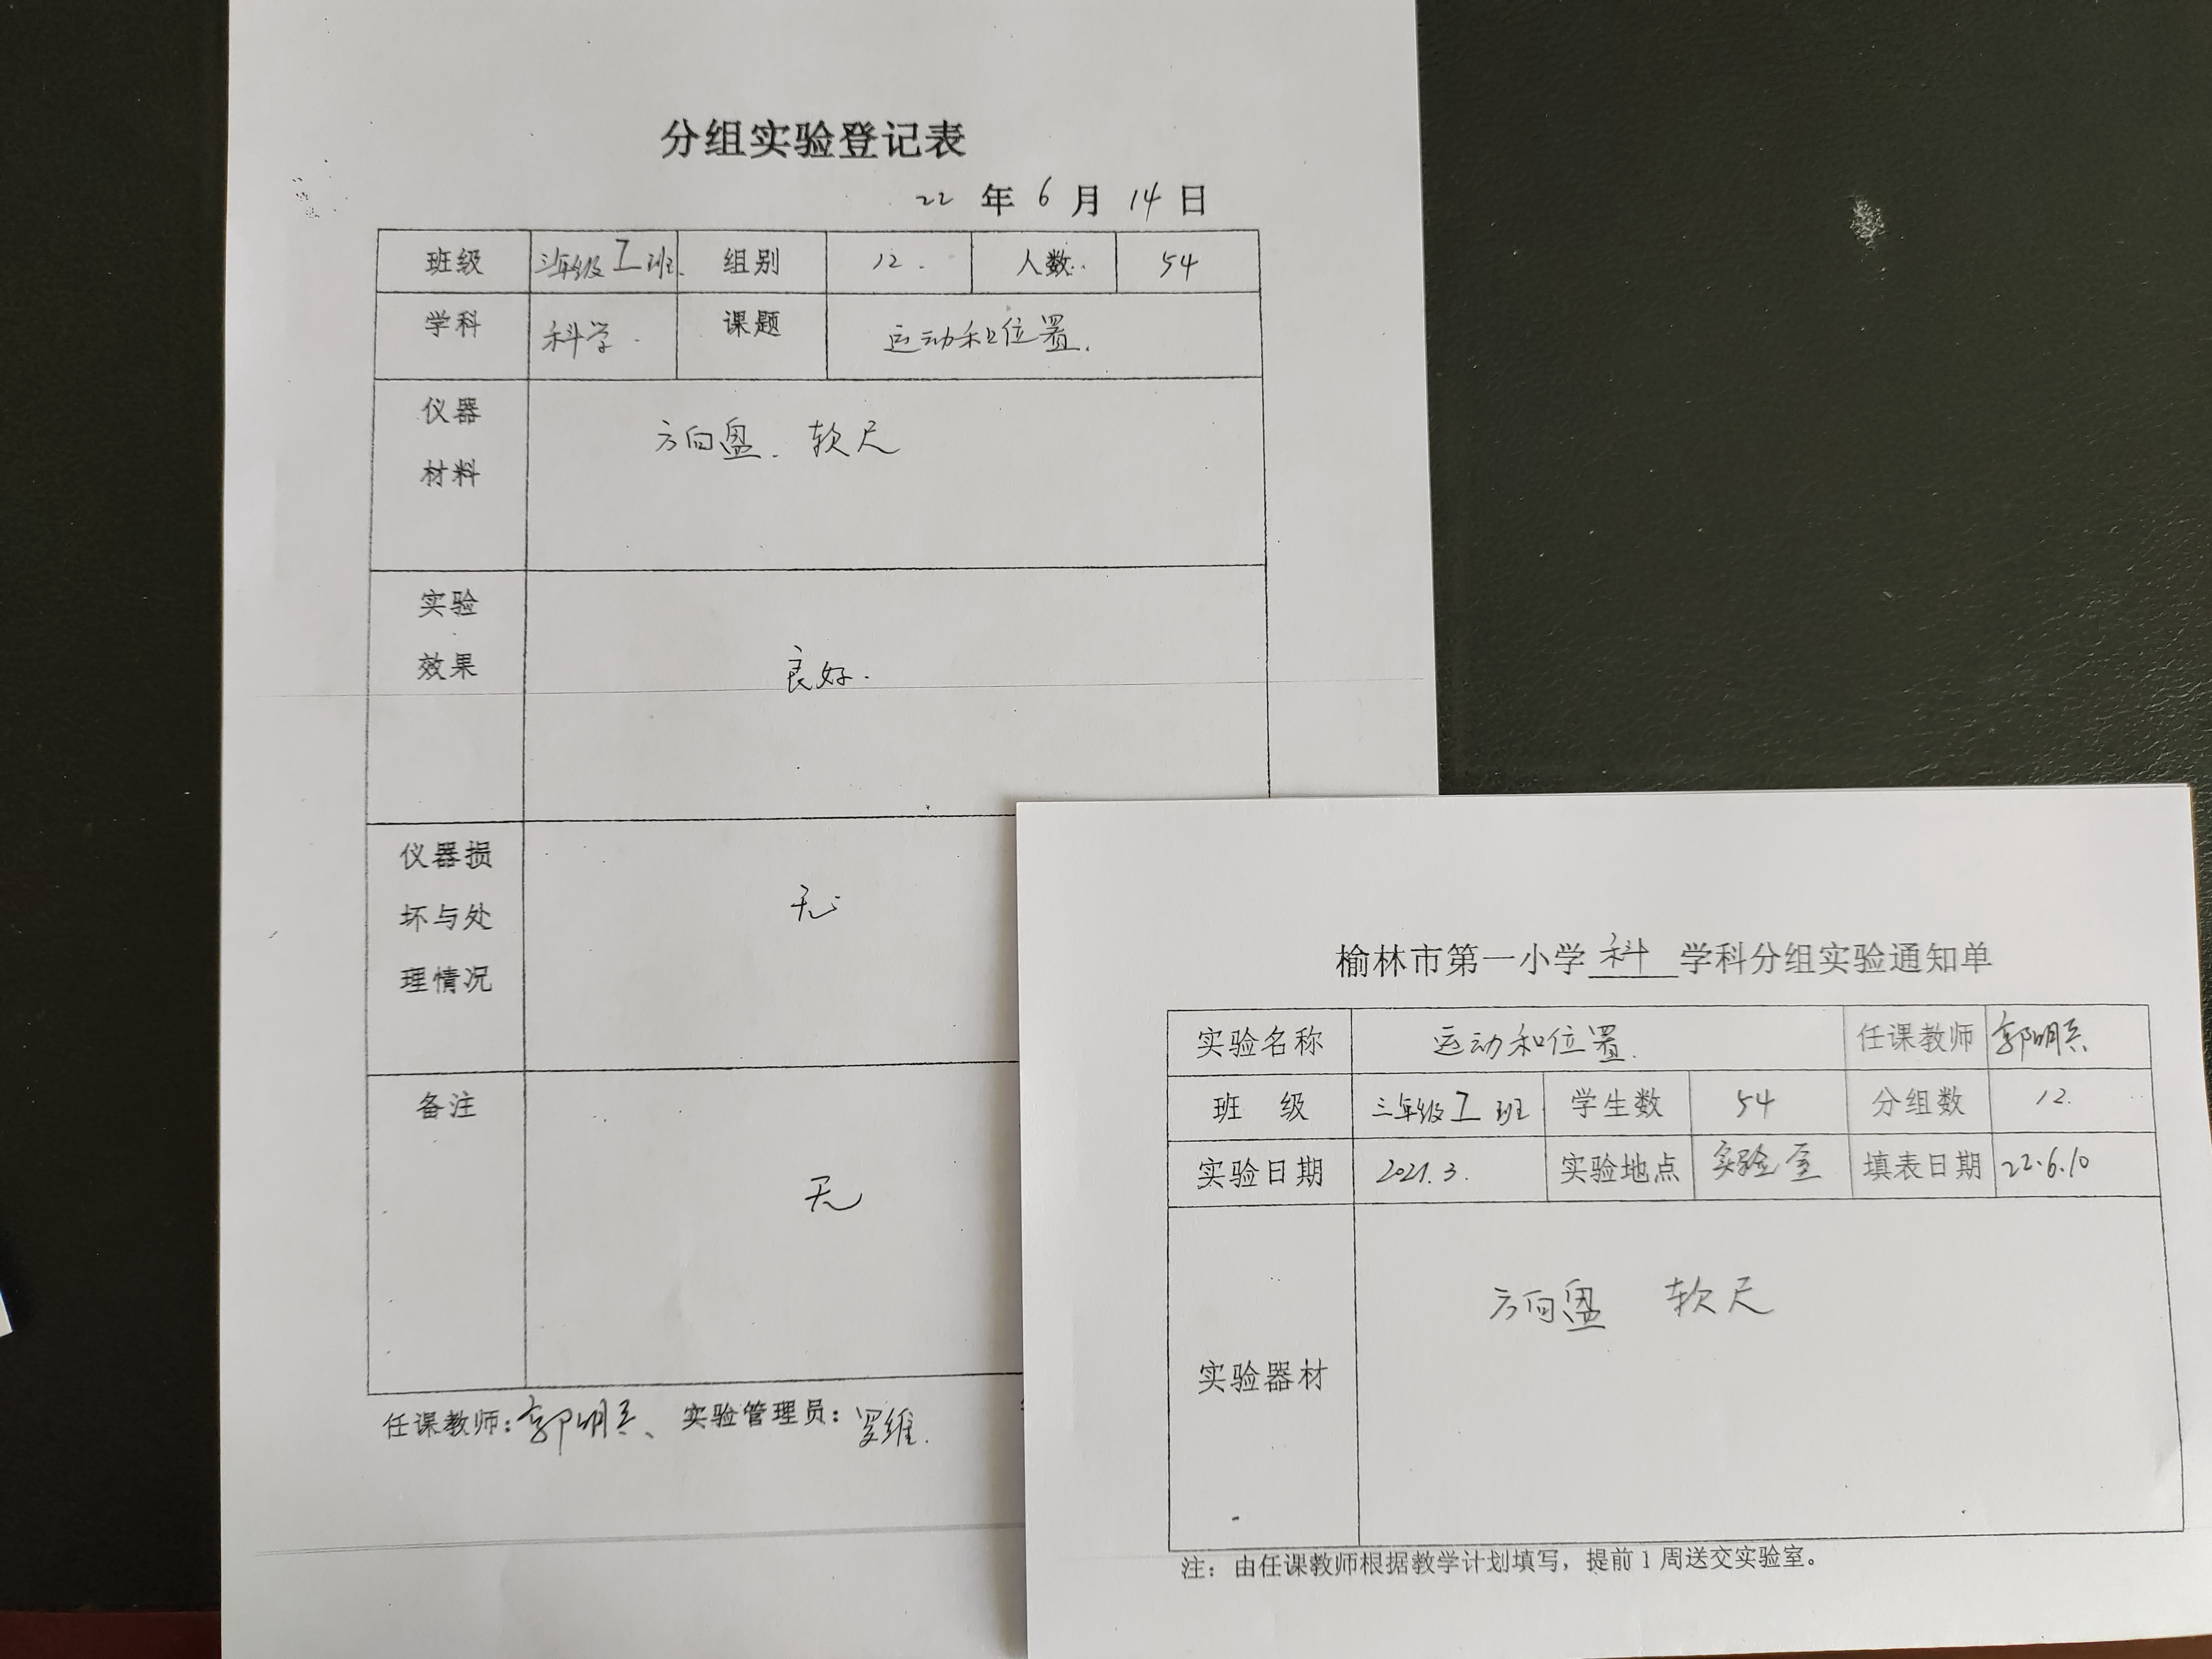 分组实验登记表
22 年 6 月 14 日
班级 三年级 I 班 组别 12. 人数 54
学科 科学. 课题 运动和位置.
仪器
材料
方向盘. 软尺
实验
效果
良好.
仪器损
坏与处
理情况
无
备注
无
任课教师:郭明兵、 实验管理员: 罗维.
榆林市第一小学 科 学科分组实验通知单
实验名称 运动和位置. 任课教师 郭明兵
班 级 三年级 I 班 学生数 54 分组数 12.
实验日期 2021.3. 实验地点 实验室 填表日期 22.6.10
实验器材 方向盘 软尺
注: 由任课教师根据教学计划填写, 提前 1 周送交实验室。